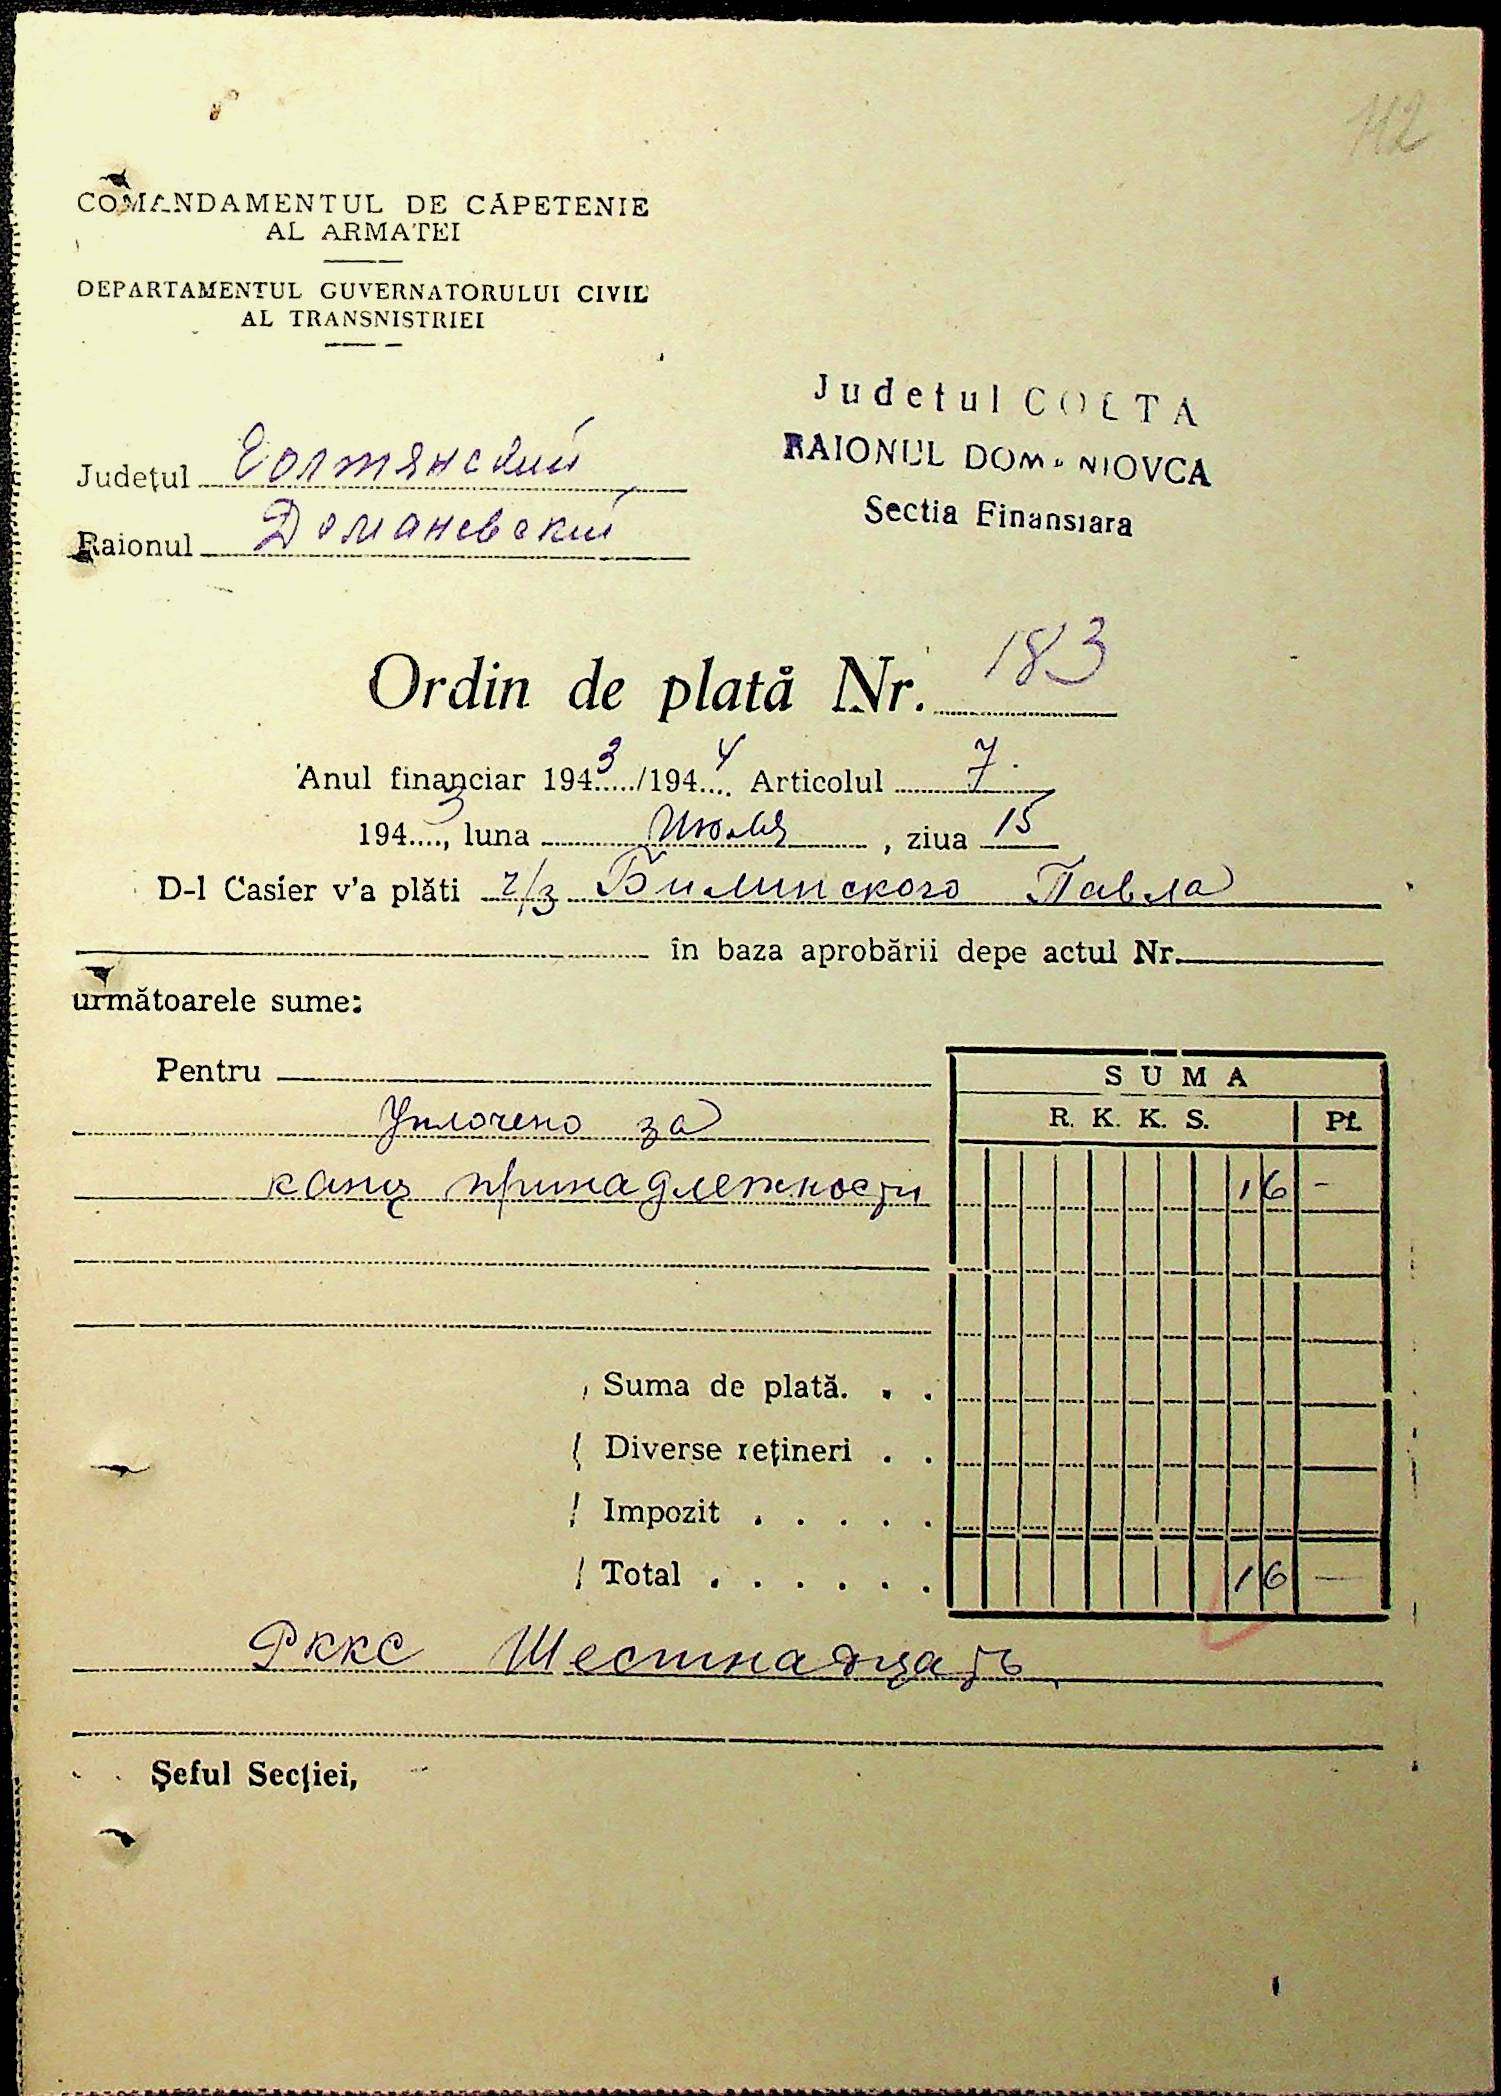 112
COMANDAMENTUL DE CĂPETENIE
AL ARMATEI
DEPARTAMENTUL GUVERNATORULUI CIVIL
AL TRANSNISTRIEI
Judetul GOLTA
RAIONUL DOMANIOVCA
Sectia Finansiara
Județul Голтянский
Raionul Доманевский
Ordin de plată Nr. 183
Anul financiar 1943/1944 Articolul 7.
1943, luna Июля, ziua 15
D-l Casier v'a plăti ч/з Билинского Павла
în baza aprobării depe actul Nr.
următoarele sume:
Pentru
SUMA
R. K. K. S. Pf.
Уплочено за
канц принадлежности 16 -
Suma de plată. . .
Diverse rețineri . .
Impozit . . . . .
Total . . . . . . 16 —
РККС Шестнадцать
Șeful Secției,